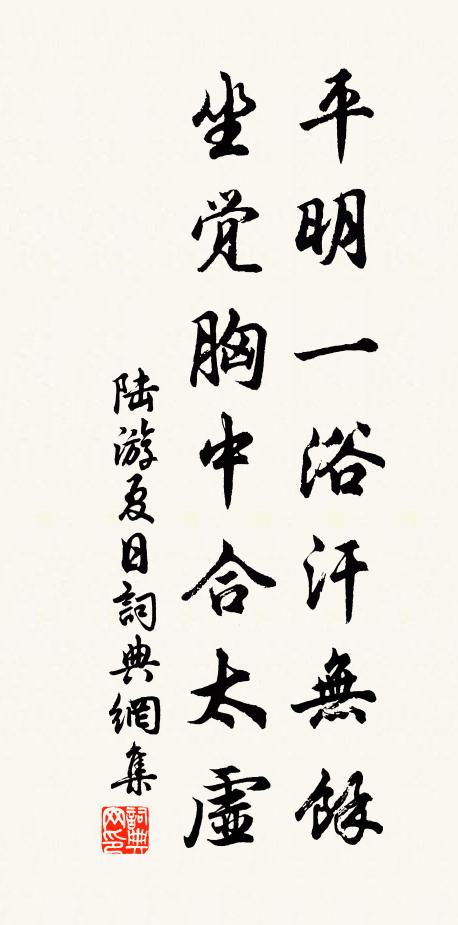 平明一浴汗無餘
坐覺胸中合太虛
陆游夏日詞典網集
詞典网印